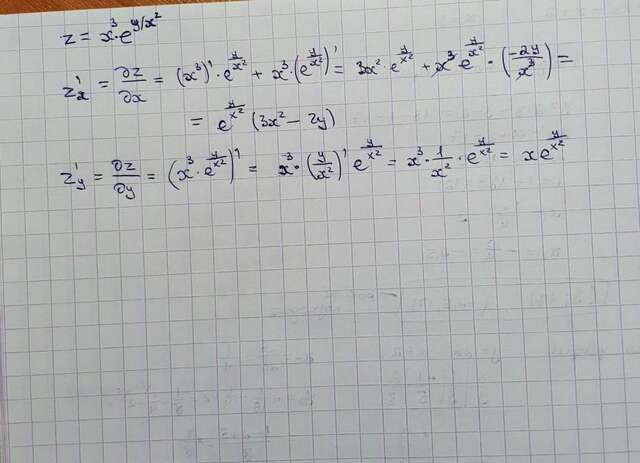 z = x³·e^{y/x²}
z'ₓ = ∂z/∂x = (x³)'·e^{y/x²} + x³·(e^{y/x²})' = 3x²·e^{y/x²} + x³ e^{y/x²}·(-2y/x³) =
= e^{y/x²} (3x² - 2y)
z'_y = ∂z/∂y = (x³·e^{y/x²})' = x³·(y/x²)' e^{y/x²} = x³·1/x²·e^{y/x²} = xe^{y/x²}